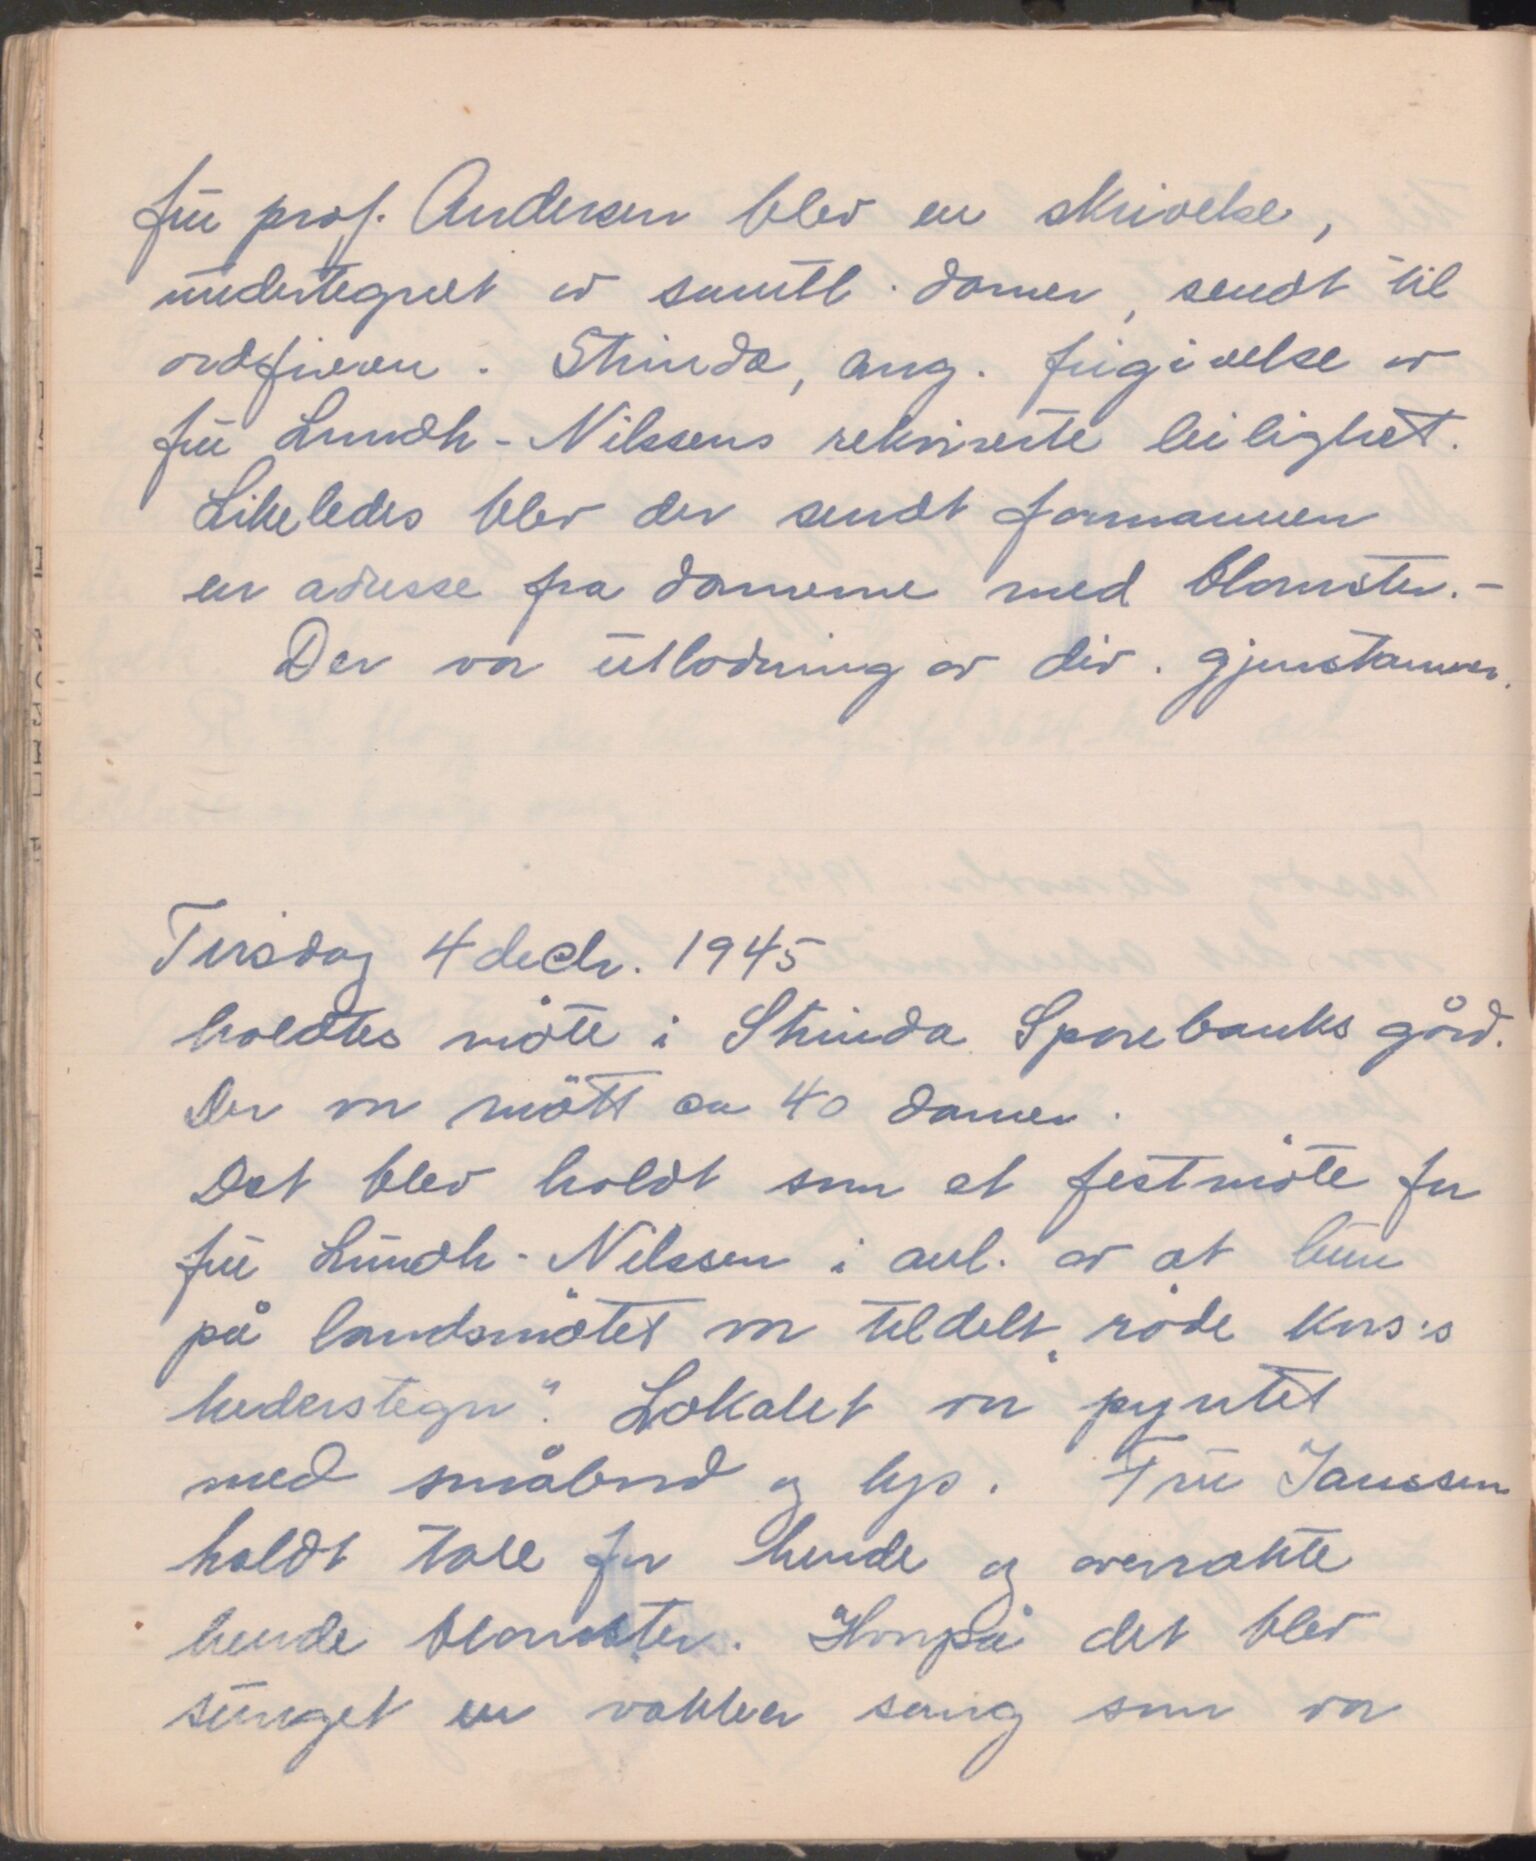 fru prof. Andersen blev en skrivelse,
undertegnet av samtl. damer, sendt til
ordføreren. Strinda, ang. frigivelse av
fru Lundh-Nilssens rekvirerte leilighet.
Likeledes blev der sendt formannen
en adresse fra damerne med blomster.-
Der var utlodning av div. gjenstanner.
Tirsdag 4 decbr. 1945
holdtes möte i Strinda Sparebanks gård.
Der var mött ca 40 damer.
Det blev holdt som et festmöte for
fru Lundh-Nilssen i anl. av at hun
på landsmötet var tildelt „röde kors's
hederstegn". Lokalet var pyntet
med småbord og lys. Fru Janssen
holdt tale for hende og overrakte
hende blomster. Hvorpå det blev
sunget en vakker sang som var